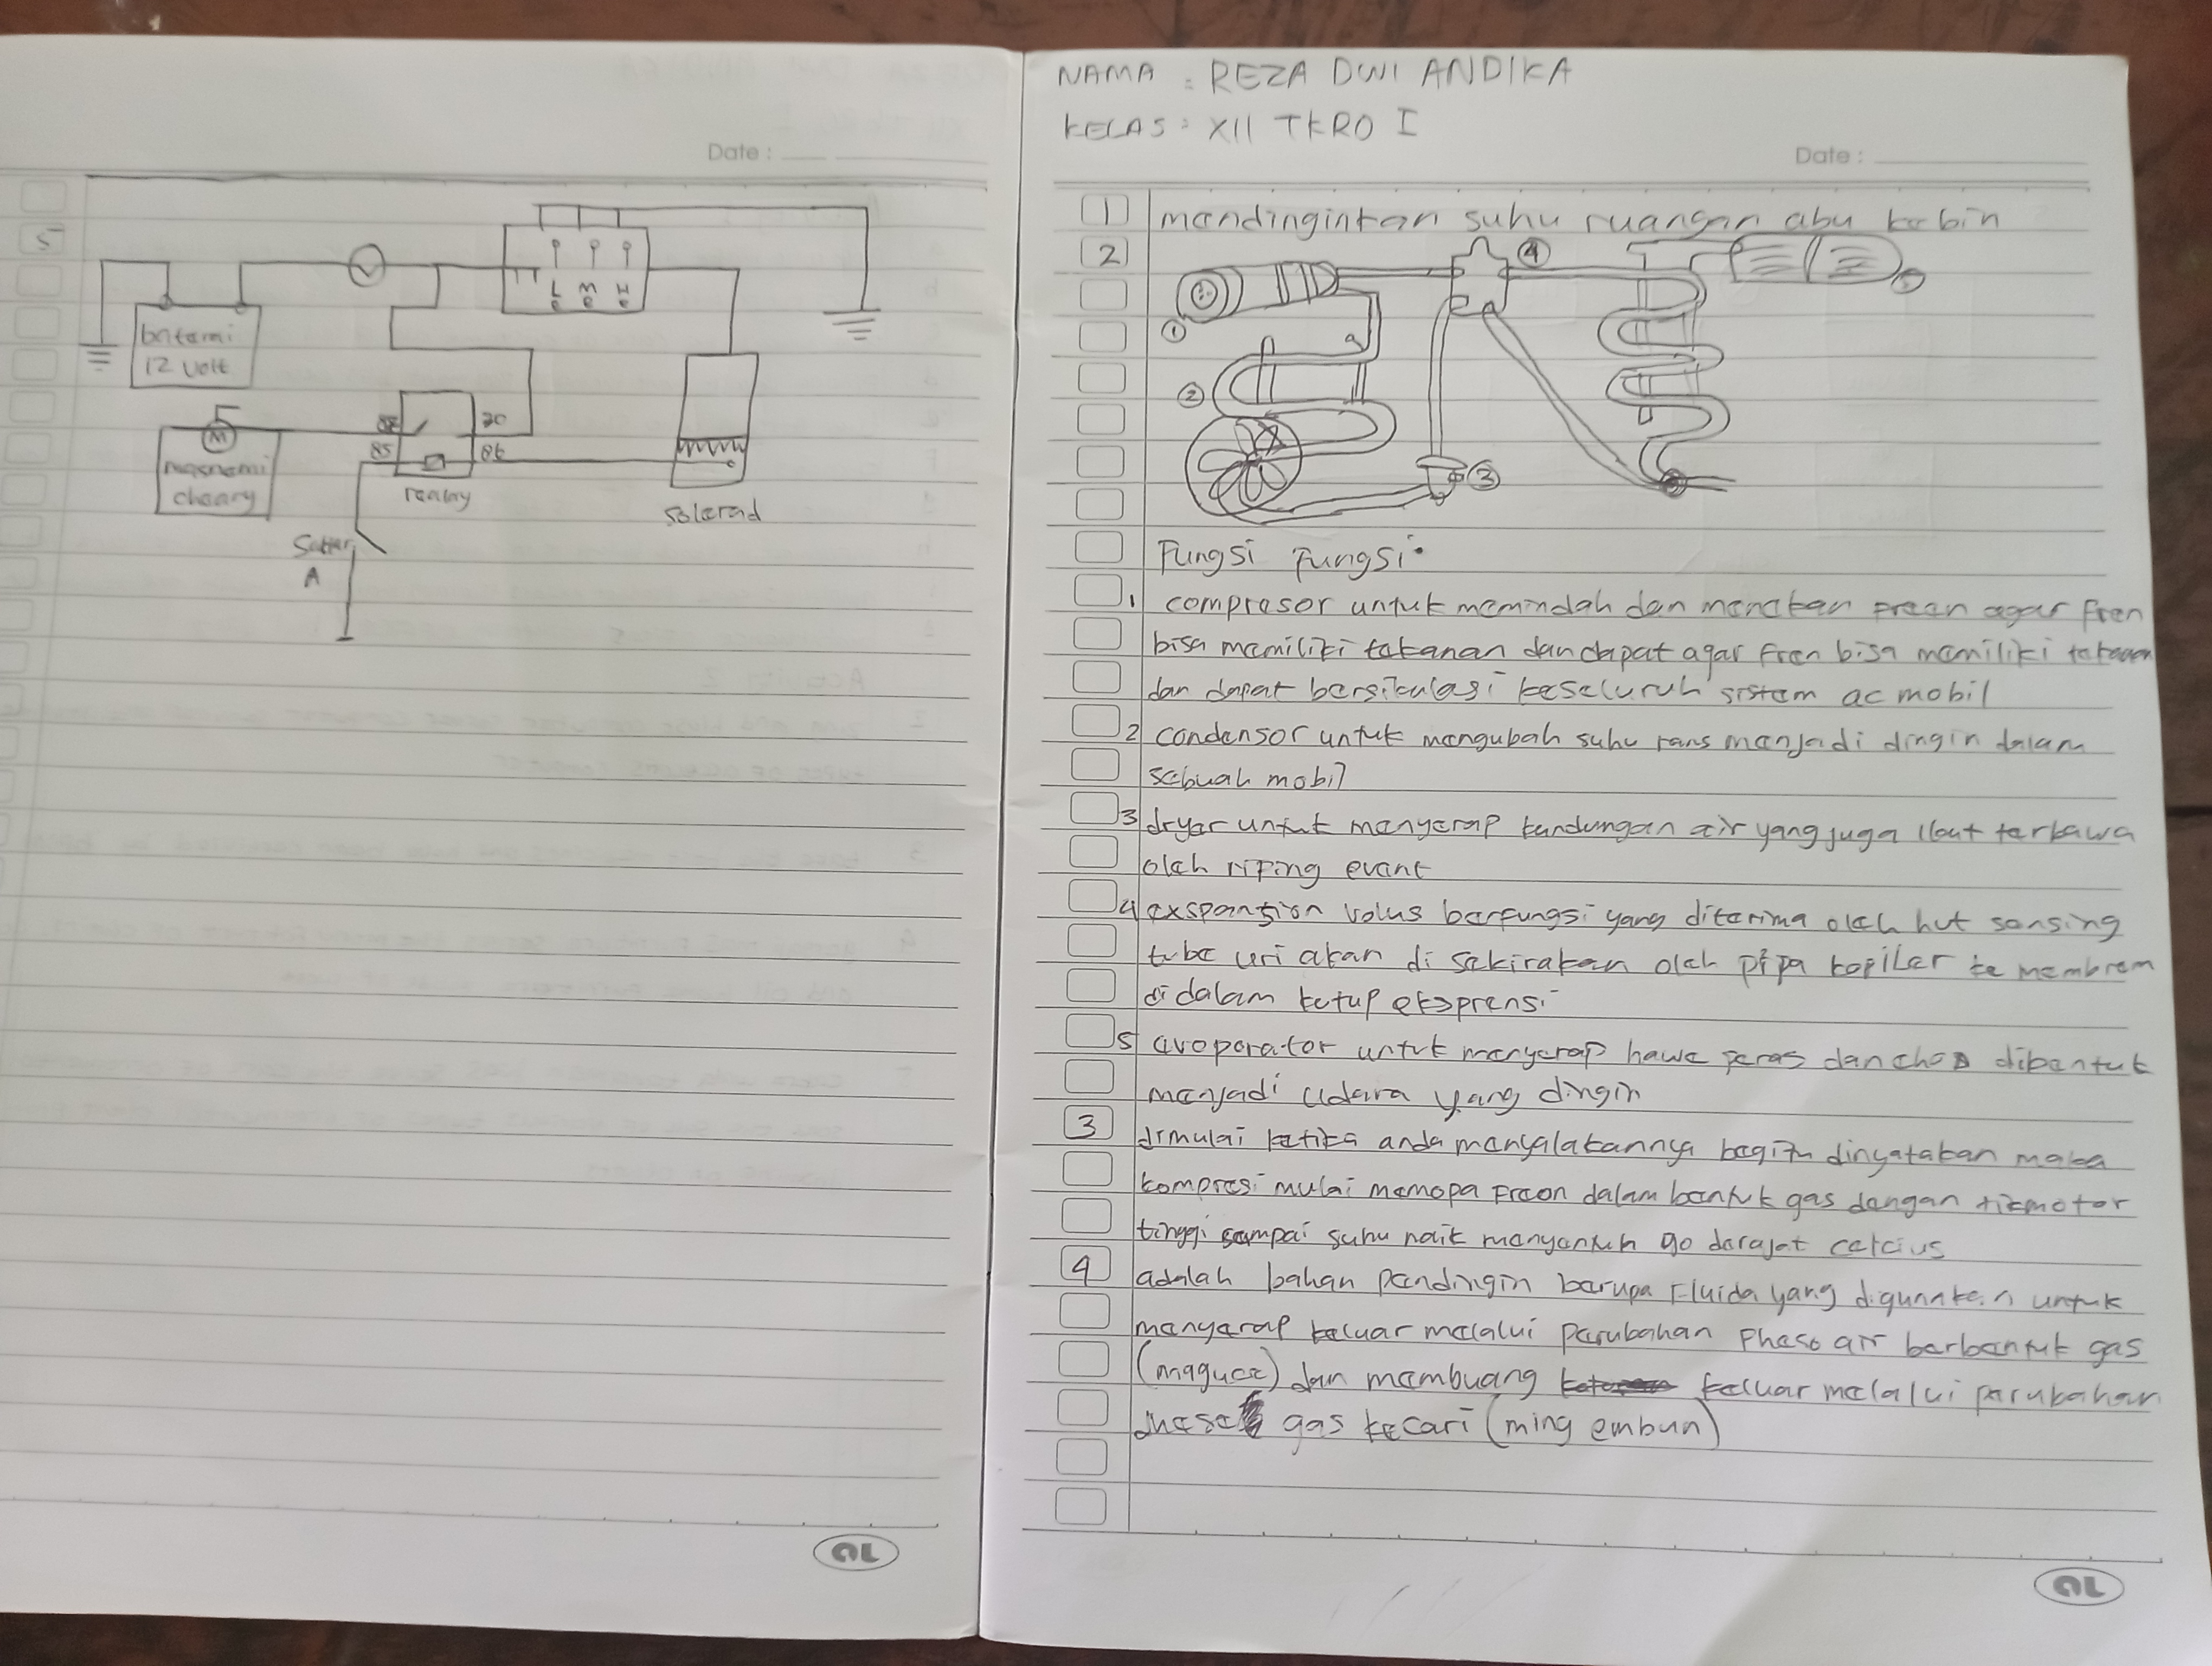 NAMA : REZA DWI ANDIKA
KELAS : XII TKRO I
Date :
1 mendinginkan suhu ruangan abu kabin
2
①
②
③
④
⑤
Fungsi Fungsi
1 compresor untuk memindah dan menekan preen agar fren
bisa memiliki tekanan dan dapat agar fren bisa memiliki tekanan
dan dapat bersikulasi keseluruh sistem ac mobil
2 condensor untuk mengubah suhu panas menjadi dingin dalam
sebuah mobil
3 dryer untuk menyerap kandungan air yang juga ikut terbawa
oleh riping evant
4 exspantion valus berfungsi yang diterima oleh hut sensing
tube uri akan di sakirakan oleh pipa kapiler ke membram
didalam katup eksprensi
5 avoporator untuk menyerap hawe panas dan dibentuk
menjadi udara yang dingin
3 dimulai ketika anda menyalakannya begitu dinyatakan maka
kompresi mulai memopa Freon dalam bentuk gas dengan
tinggi sampai suhu naik menyentuh 90 derajat celcius
4 adalah bahan pendingin berupa Fluida yang digunakan untuk
menyerap keluar melalui perubahan Phase air berbentuk gas
(mague) dan membuang keluar melalui perubahan
phase gas kecari (ming embun)
AL
Date :
5
baterai
12 Volt
L M H
M
magenemi
cheary
87
30
85
86
realay
A
Solenad
AL